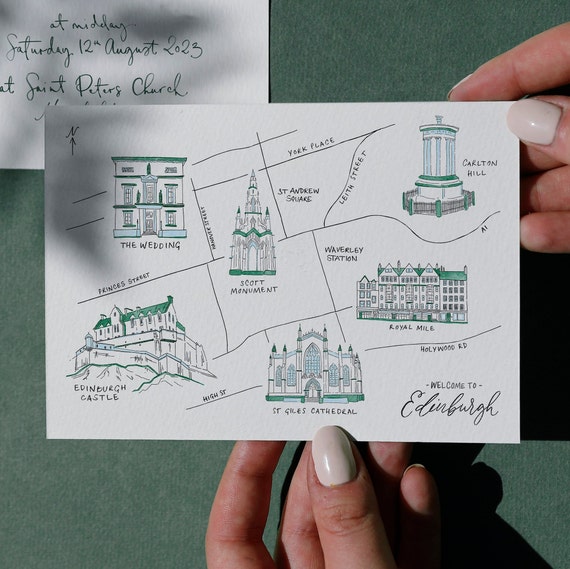 at midday
Saturday 12th August 2023
at Saint Peters Church
N
YORK PLACE
CARLTON
HILL
LEITH STREET
ST ANDREW
SQUARE
HANOVER STREET
THE WEDDING
A1
WAVERLEY
STATION
SCOTT
MONUMENT
PRINCES STREET
ROYAL MILE
HOLYWOOD RD
EDINBURGH
CASTLE
HIGH ST
ST GILES CATHEDRAL
- WELCOME TO -
Edinburgh